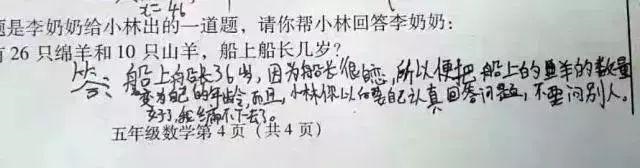 x=46
题是李奶奶给小林出的一道题，请你帮小林回答李奶奶：
有 26 只绵羊和 10 只山羊，船上船长几岁？
答：船上船长36岁，因为船长很，所以便把船上的羊的数量
变为自己的年龄，而且，小林你以后要自己认真回答问题，不要问别人。
好了，我编不下去了。
五年级数学第 4 页（共 4 页）